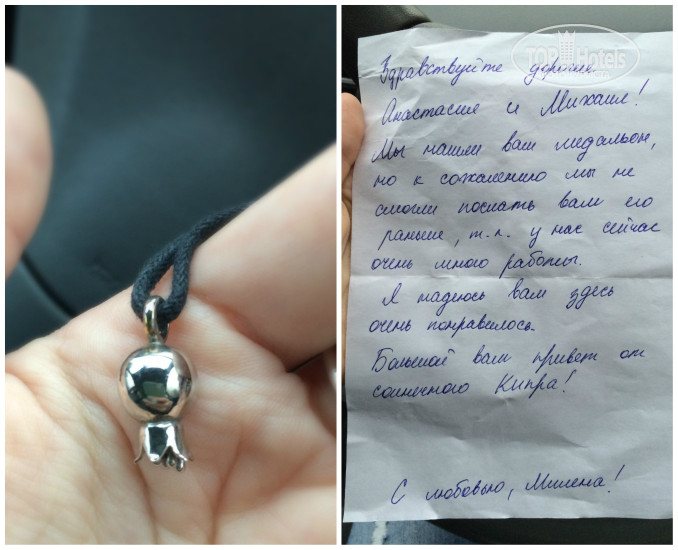 TOPHotels
Здравствуйте дорогие
Анастасия и Михаил!
Мы нашли ваш медальон,
но к сожалению мы не
смогли послать вам его
раньше, т.к. у нас сейчас
очень много работы.
Я надеюсь вам здесь
очень понравилось.
Большой вам привет от
солнечного Кипра!
С любовью, Милена!